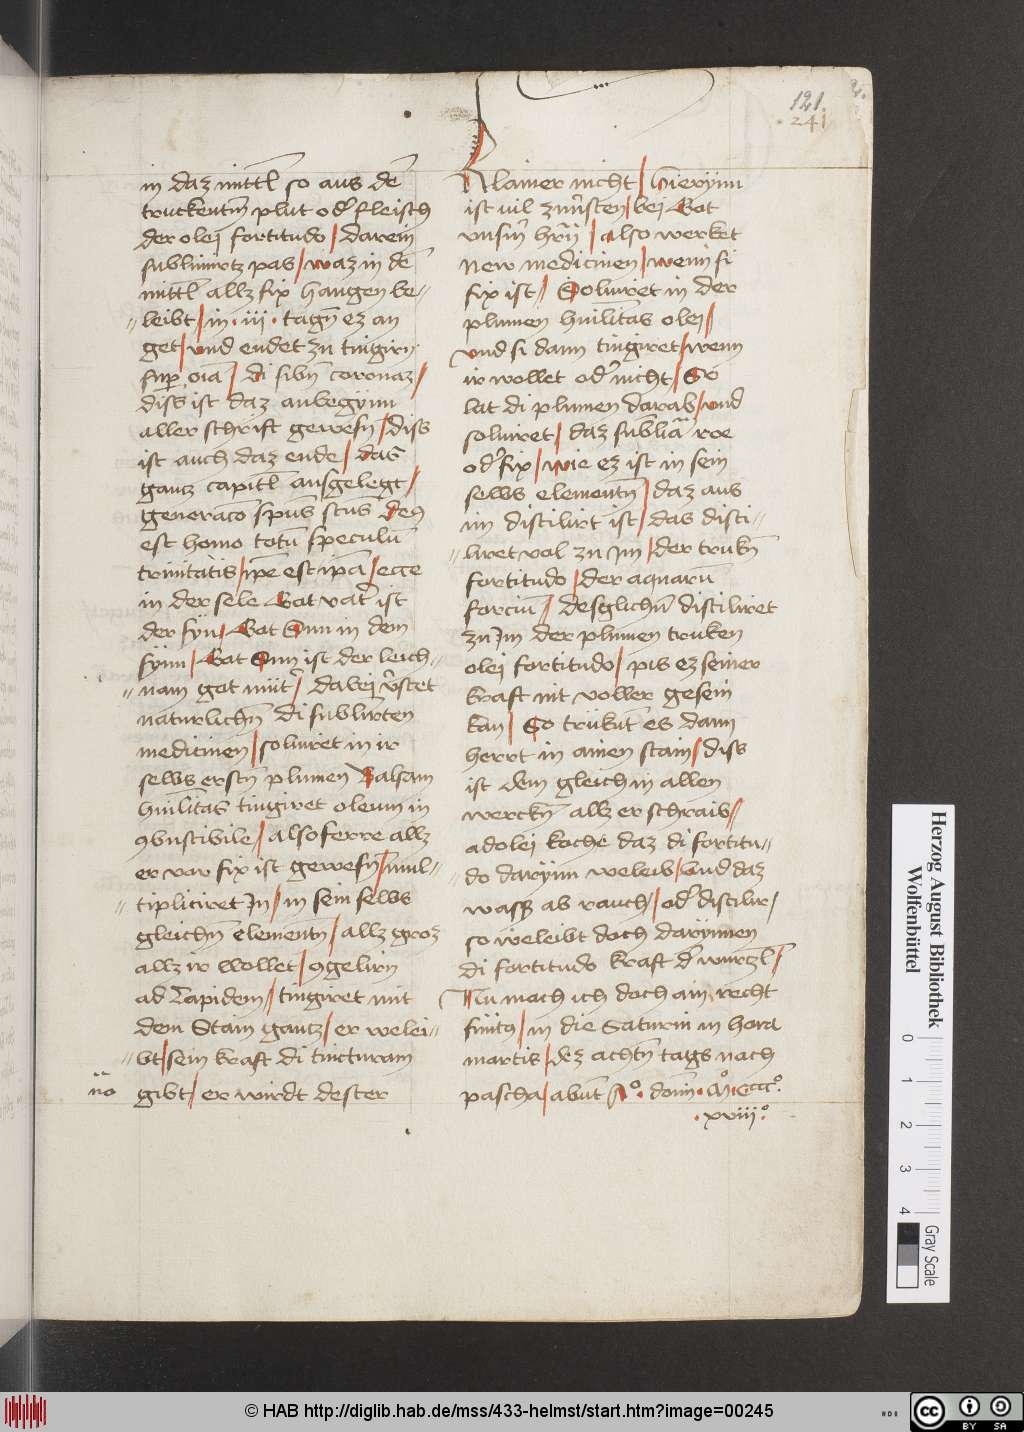 121.
241
in daz mittl so aus dē
truckentm plut od' fleisch
der olei fortitudo / darein
sublimirtz pas / waz in dē
mittl allz fix hangen be„
„leibt / in · iii · tagn ez an
get / vnd endet zu tingirn
sup oīa / di sibn coronaz /
diss ist daz anbegynn
aller schrift gewesn / diss
ist auch daz ende / das
gantz capitl ausgelegt /
generaco spūs scūs deq
est homo totū speculū
trinitatis / ipe est ipā / ecce
in der sele Got vat' ist
der syn / Got Sun in dem
synn / Got Sun ist der leich„
„nam get mit' / dabei v'stet
naturlichn di sublirten
medicinen / soluiret in ir
selbs erstn plumen Balsam
huilitas tingiret oleum in
9bustibile / also ferre allz
er vor fix ist gewesn / mul„
„tipliciret In / in sein selbs
gleichn elementn / allz groz
allz ir wollet / 9gelirn
ad Lapidem / tingiret mit
dem Stain gantz / er welei„
„bt / sein kraft di tincturam
no gibt / er wirdt dester
Klainer nicht / Hierynn
ist vil zuu'sten / bei Got
vnsm hrn / also werket
new medicinen / wenn si
fix ist / Soluiret in der
plumen huilitas olei /
vnd si dann tingiret / wenn
ir wollet od' nicht / So
lat di plumen darab / vnd
soluiret / daz sublia roe
od' fix / wie ez ist in sein
selbs elementn / daz aus
im distilirt ist / das disti„
„liret vol zu Im / der trukn
fortitudo / der aquarū
forciū / desglichn distiliret
zu Im der plumen truken
olei fortitudo / pis ez seiner
kraft nit voller gesein
kan / So trukn es dann
herrt in ainen stain / diss
ist dem gleich in allen
werckn allz er schraib /
ad olei koche daz di fortitu„
„do darynn weleib / vnd daz
wass ab rauch / od' distilir /
so weleibt doch darynnen
di fortitudo kraft d' wurzl /
Nu mach ich doch ain recht
finita / in die Saturni in hora
martis / dez achtn tags nach
pascha / abūt Ao. domn. Mo. cccco.
xviiio.
Herzog August Bibliothek
Wolfenbüttel
0
1
2
3
4
Gray Scale
© HAB http://diglib.hab.de/mss/433-helmst/start.htm?image=00245
HAB
cc BY SA